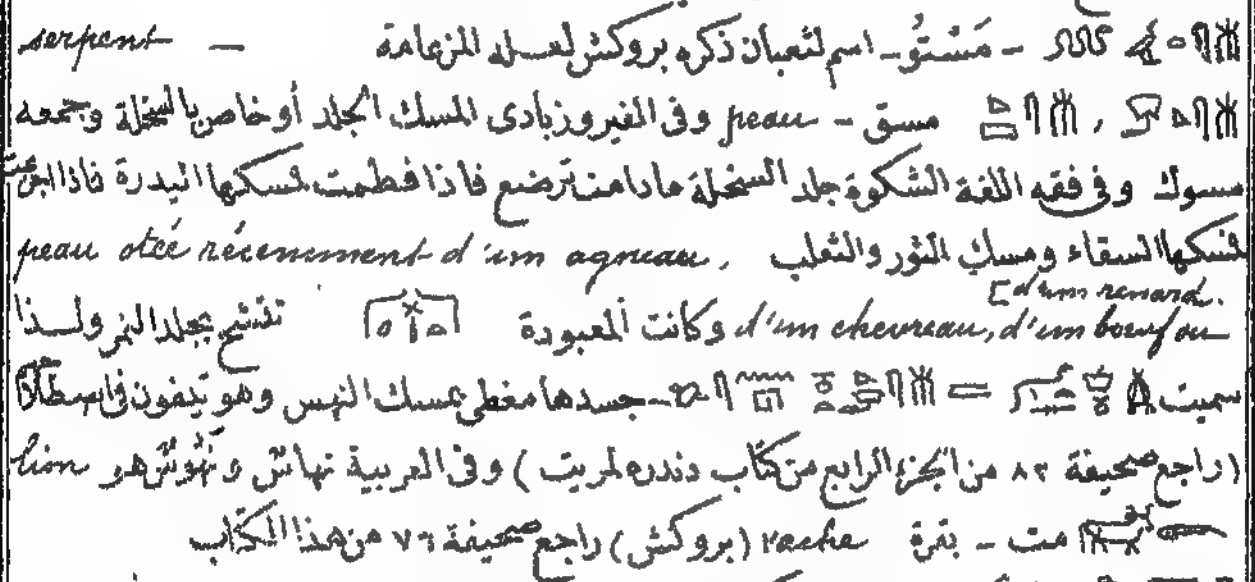 – مَسْتُو – اسم لثعبان ذكره بروكش لعله المزعامة – serpent
مسق – peau وفى الفيروزبادى المسك الجلد أو خاص بالسخلة وجمعه
مسوك وفى فقه اللغة الشكوة جلد السخلة مادامت ترضع فاذا فطمت فمسكها البدرة فاذا اجذعت
فمسكها السقاء ومسك الثور والثعلب peau otée récemment d'un agneau,
d'un chevreau, d'un bœuf ou [d'un renard. وكانت المعبودة تتشح بجلد النمر ولذا
سميت = جسدها مغطى بمسك النمس وهو تيفون
(راجع صحيفة ٨٢ من الجزء الرابع من كتاب دندره لمريت) وفى العربية نهاش ونهوش هو lion
مت – بقرة vache (بروكش) راجع صحيفة ٧٦ من هذا الكتاب